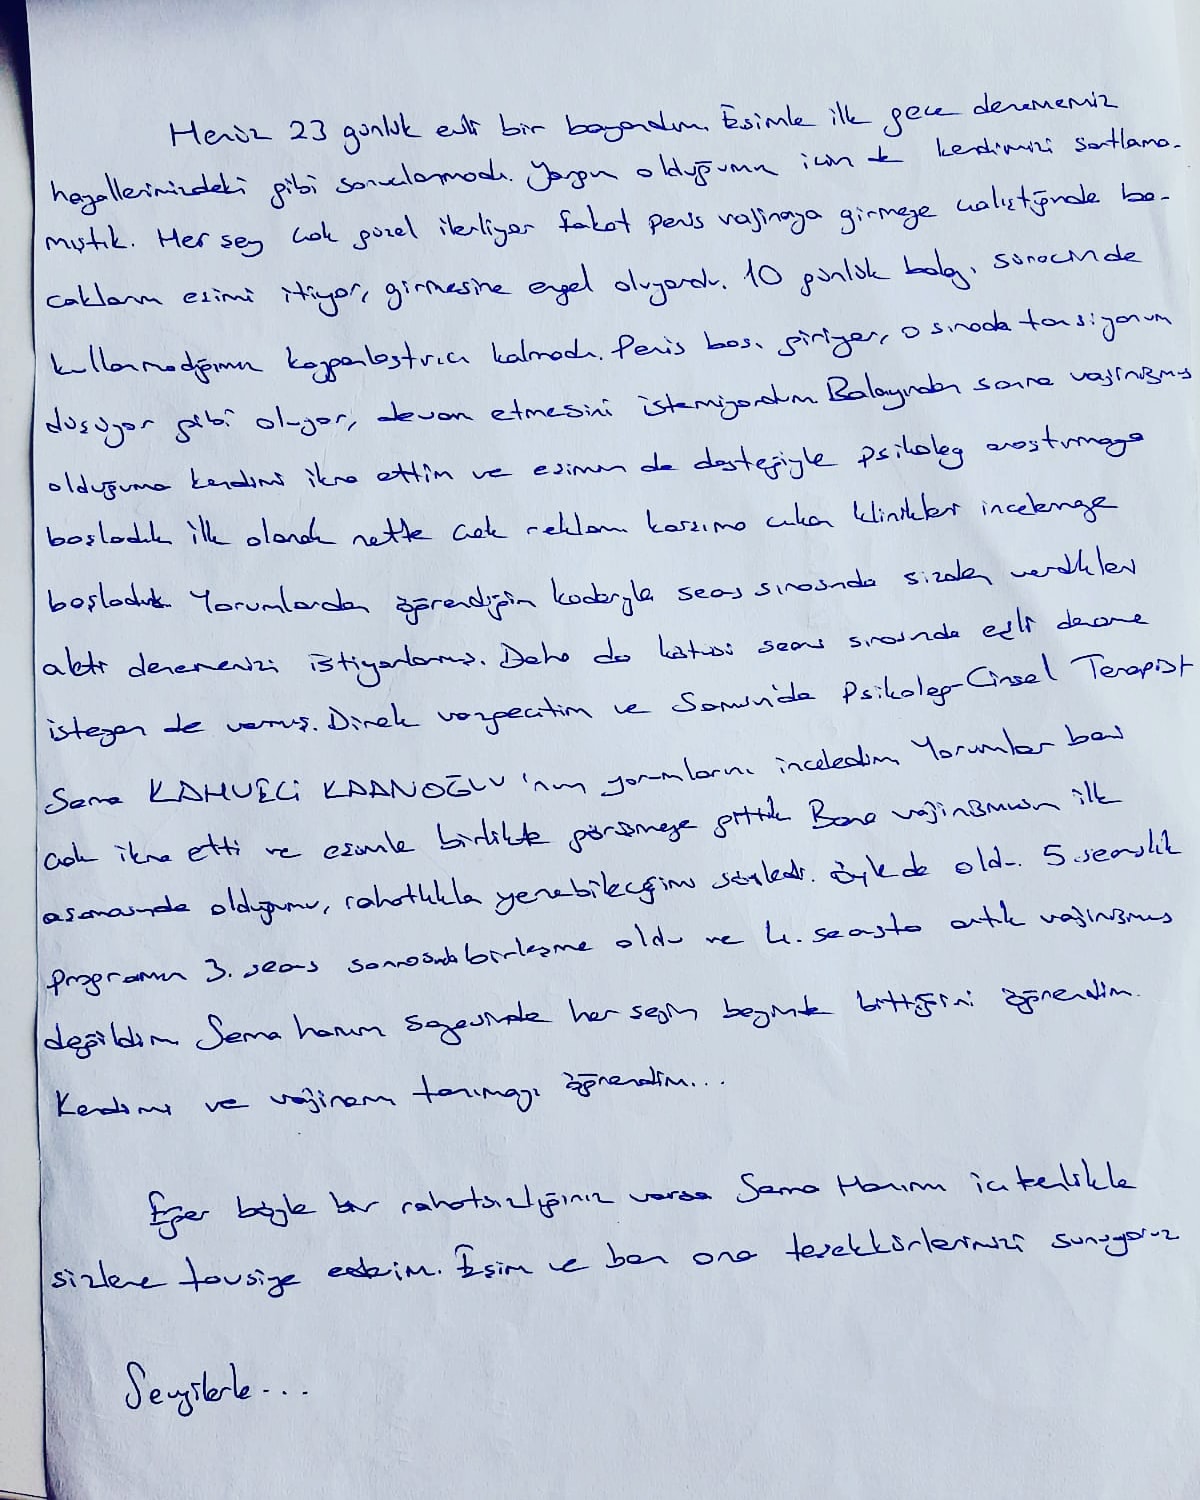 Henüz 23 günlük evli bir bayandım. Eşimle ilk gece denememiz
hayallerimizdeki gibi sonuçlanmadı. Yorgun olduğumuz için kendimizi şartlama-
mıştık. Her şey çok güzel ilerliyor fakat penis vajinaya girmeye çalıştığında ba-
caklarım eşimi itiyor, girmesine engel oluyordu. 10 günlük balayı sürecinde
kullanmadığımız kayganlaştırıcı kalmadı. Penis başı giriyor, o sırada tansiyonum
düşüyor gibi oluyor, devam etmesini istemiyordum. Balayından sonra vajinismus
olduğuma kendimi ikna ettim ve eşimin de desteğiyle psikolog araştırmaya
başladık ilk olarak nette çok reklamı karşıma çıkan klinikleri incelemeye
başladık. Yorumlardan öğrendiğim kadarıyla seans sırasında sizden verdikleri
aleti denemenizi istiyorlarmış. Daha da kötüsü seans sırasında eşli deneme
isteyen de varmış. Direk vazgeçtim ve Samsun'da Psikolog-Cinsel Terapist
Sema KAHVECİ KAANOĞLU'nun yorumlarını inceledim Yorumlar beni
çok ikna etti ve eşimle birlikte görüşmeye gittik Bana vajinismusun ilk
aşamasında olduğumu, rahatlıkla yenebileceğimi söyledi. Öyle de oldu. 5 seanslık
programın 3. seans sonrasında birleşme oldu ve 4. seansta artık vajinismus
değildim. Sema hanım sayesinde her şeyin beyinde bittiğini öğrendim.
Kendimi ve vajinamı tanımayı öğrendim...
Eğer böyle bir rahatsızlığınız varsa Sema Hanımı içtenlikle
sizlere tavsiye ederim. Eşim ve ben ona teşekkürlerimizi sunuyoruz
Sevgilerle...